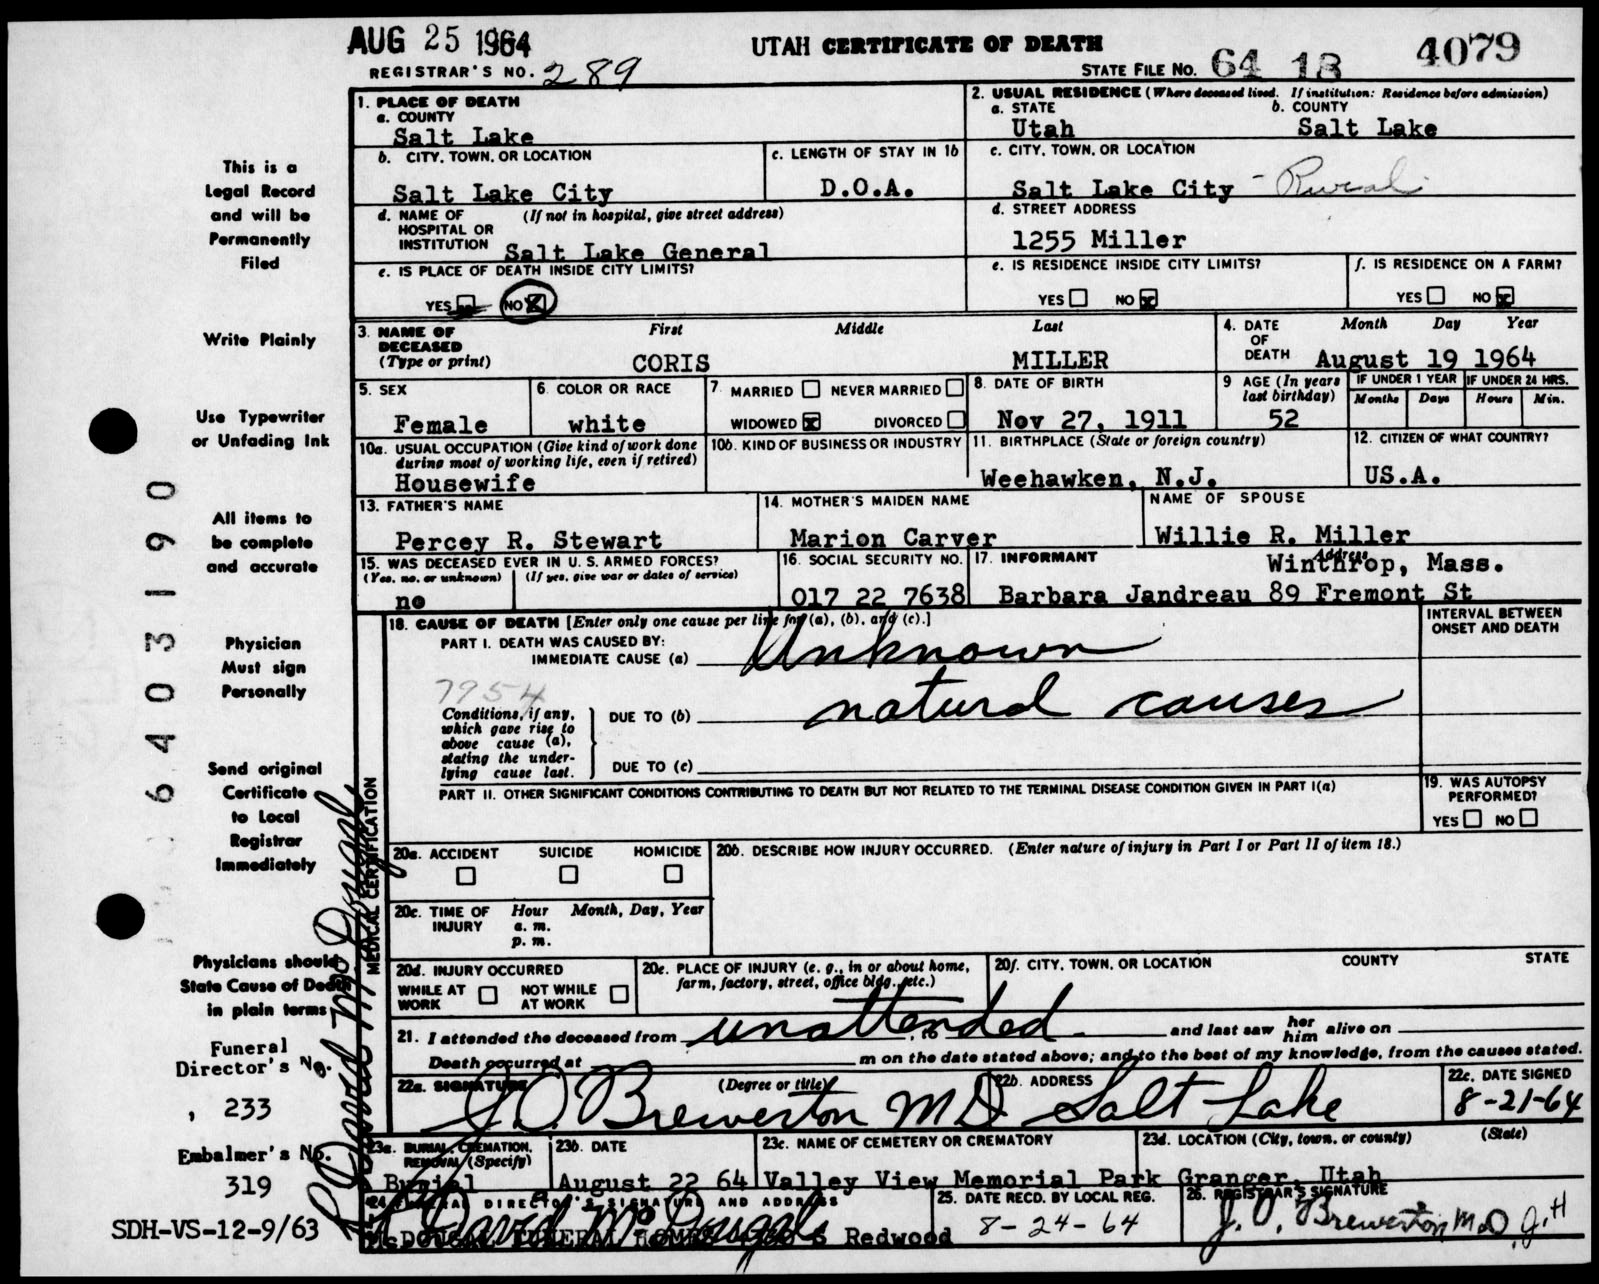 AUG 25 1964
UTAH CERTIFICATE OF DEATH
REGISTRAR'S NO. 289
STATE FILE NO. 64 18 4079
This is a
Legal Record
and will be
Permanently
Filed
Write Plainly
Use Typewriter
or Unfading Ink
All items to
be complete
and accurate
Physician
Must sign
Personally
Send original
Certificate
to Local
Registrar
Immediately
Physicians should
State Cause of Death
in plain terms
Funeral
Director's No.
, 233
Embalmer's No.
319
SDH-VS-12-9/63
6403190
1. PLACE OF DEATH
a. COUNTY
Salt Lake
2. USUAL RESIDENCE (Where deceased lived. If institution: Residence before admission)
a. STATE b. COUNTY
Utah Salt Lake
b. CITY, TOWN, OR LOCATION
Salt Lake City
c. LENGTH OF STAY IN 1b
D.O.A.
c. CITY, TOWN, OR LOCATION
Salt Lake City - Rural
d. NAME OF (If not in hospital, give street address)
HOSPITAL OR
INSTITUTION Salt Lake General
d. STREET ADDRESS
1255 Miller
e. IS PLACE OF DEATH INSIDE CITY LIMITS?
YES NO X
e. IS RESIDENCE INSIDE CITY LIMITS?
YES NO X
f. IS RESIDENCE ON A FARM?
YES NO X
3. NAME OF First Middle Last
DECEASED
(Type or print) CORIS MILLER
4. DATE Month Day Year
OF
DEATH August 19 1964
5. SEX
Female
6. COLOR OR RACE
white
7. MARRIED NEVER MARRIED
WIDOWED X DIVORCED
8. DATE OF BIRTH
Nov 27, 1911
9 AGE (In years
last birthday)
52
IF UNDER 1 YEAR IF UNDER 24 HRS.
Months Days Hours Min.
10a. USUAL OCCUPATION (Give kind of work done
during most of working life, even if retired)
Housewife
10b. KIND OF BUSINESS OR INDUSTRY
11. BIRTHPLACE (State or foreign country)
Weehawken, N.J.
12. CITIZEN OF WHAT COUNTRY?
US.A.
13. FATHER'S NAME
Percey R. Stewart
14. MOTHER'S MAIDEN NAME
Marion Carver
NAME OF SPOUSE
Willie R. Miller
15. WAS DECEASED EVER IN U. S. ARMED FORCES?
(Yes, no, or unknown) (If yes, give war or dates of service)
no
16. SOCIAL SECURITY NO.
017 22 7638
17. INFORMANT Address
Winthrop, Mass.
Barbara Jandreau 89 Fremont St
MEDICAL CERTIFICATION
18. CAUSE OF DEATH [Enter only one cause per line for (a), (b), and (c).]
INTERVAL BETWEEN
ONSET AND DEATH
PART I. DEATH WAS CAUSED BY:
IMMEDIATE CAUSE (a) Unknown
7954
Conditions, if any,
which gave rise to
above cause (a),
stating the under-
lying cause last.
DUE TO (b) natural causes
DUE TO (c)
PART II. OTHER SIGNIFICANT CONDITIONS CONTRIBUTING TO DEATH BUT NOT RELATED TO THE TERMINAL DISEASE CONDITION GIVEN IN PART I(a)
19. WAS AUTOPSY
PERFORMED?
YES NO
20a. ACCIDENT SUICIDE HOMICIDE
20b. DESCRIBE HOW INJURY OCCURRED. (Enter nature of injury in Part I or Part II of item 18.)
20c. TIME OF Hour Month, Day, Year
INJURY a. m.
p. m.
20d. INJURY OCCURRED
WHILE AT NOT WHILE
WORK AT WORK
20e. PLACE OF INJURY (e. g., in or about home,
farm, factory, street, office bldg., etc.)
20f. CITY, TOWN, OR LOCATION COUNTY STATE
21. I attended the deceased from unattended, to and last saw her him alive on
Death occurred at m on the date stated above; and to the best of my knowledge, from the causes stated.
22a. SIGNATURE (Degree or title)
J. O. Brewerton MD
22b. ADDRESS
Salt Lake
22c. DATE SIGNED
8-21-64
23a. BURIAL, CREMATION,
REMOVAL (Specify)
Burial
23b. DATE
August 22 64
23c. NAME OF CEMETERY OR CREMATORY
Valley View Memorial Park
23d. LOCATION (City, town, or county) (State)
Granger, Utah
24 FUNERAL DIRECTOR'S SIGNATURE AND ADDRESS
David McDougal
McDOUGAL FUNERAL HOMES S Redwood
25. DATE RECD. BY LOCAL REG.
8-24-64
26. REGISTRAR'S SIGNATURE
J. O. Brewerton MD. JH
David McDougal